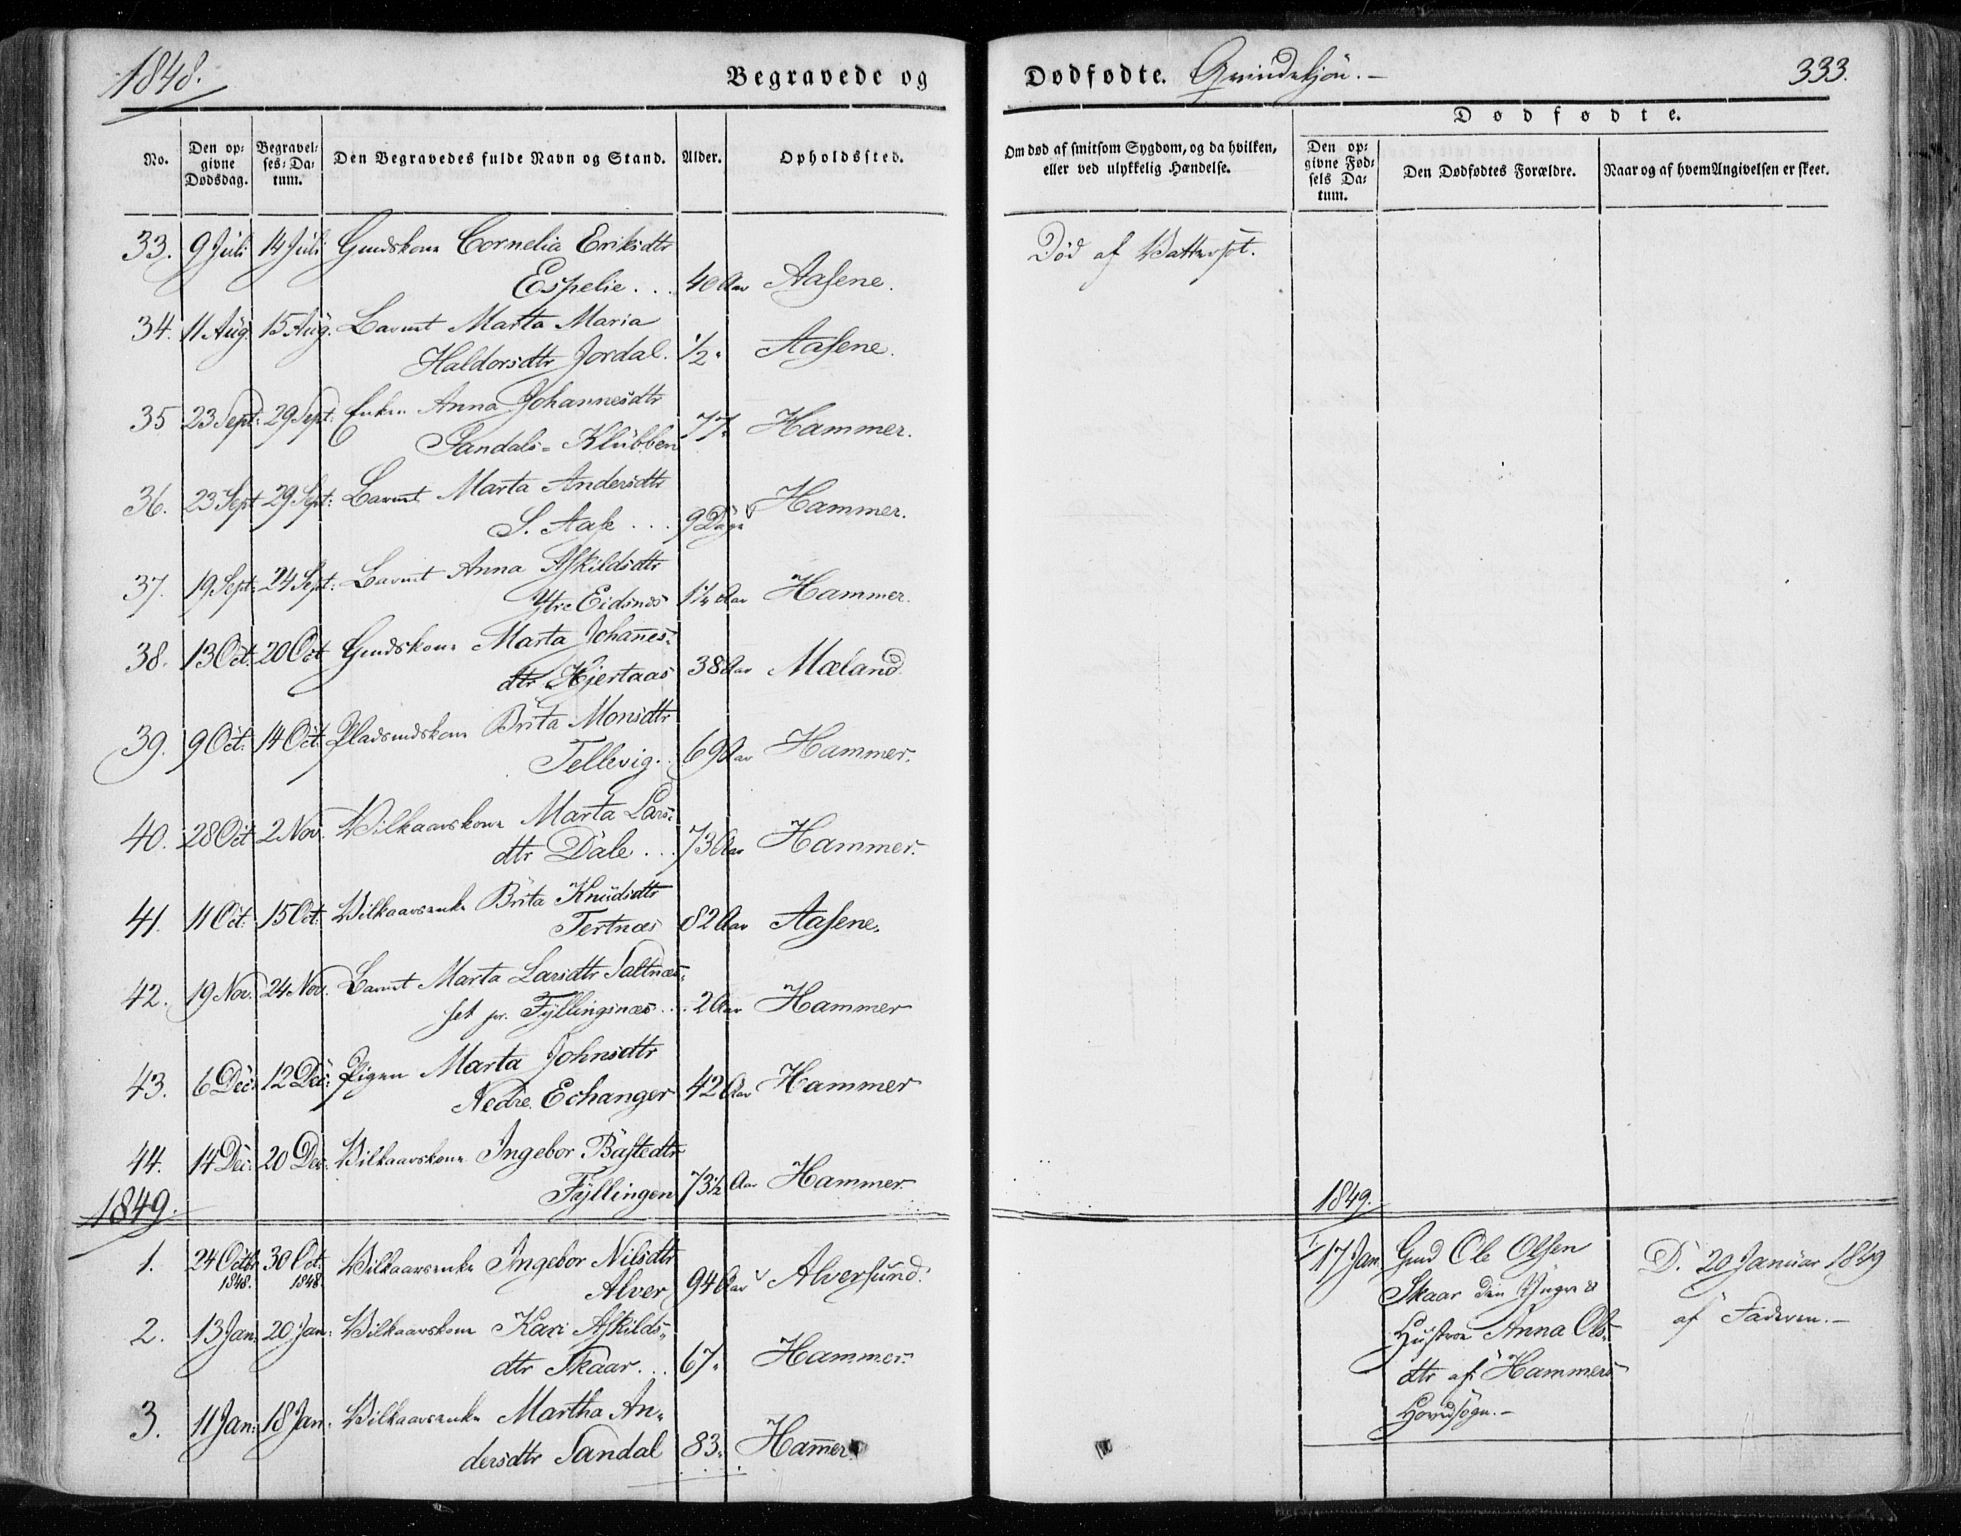 1848.
Begravede og Dødfødte. Qvindekjön.-
333.
No.
Den op-
givne
Dødsdag.
Begravel-
ses-Da-
tum.
Den Begravedes fulde Navn og Stand.
Alder.
Opholdssted.
Om død af smitsom Sygdom, og da hvilken,
eller ved ulykkelig Hændelse.
Dødfødte.
Den op-
givne Fød-
sels Da-
tum.
Den Dødfødtes Forældre.
Naar og af hvem Angivelsen er skeet.
33. 9 Juli 14 Juli Gmdskone Cornelia Eriksdtr
Espelie... 40 Aar Aasene.
Død af Vattersot.
34. 11 Aug 15 Aug. Barnet Marta Maria
Haldorsdtr Jordal. 1/2 " Aasene.
35 23 Sept: 29 Sept: Enken Anna Johannesdtr
Sandals-Klubben 77 " Hammer.
36. 23 Sept 29 Sept: Barnet Marta Andersdtr
S. Aase ... 9 Dage Hammer.
37. 19 Sept: 24 Sept: Barnet Anna Askildsdtr
Ytre Eidsnes 1 1/4 Aar Hammer.
38. 13 Oct. 20 Oct Gmdskone Marta Johanes-
dtr Hjertaas 38 Aar Mæland
39. 9 Oct. 14 Oct. Pladsmdskone Brita Monsdtr
Tellevig.. 69 Aar Hammer.
40. 28 Oct 2 Nov. Vilkaarskone Marta Lars-
dtr Dale... 73 Aar Hammer.
41. 11 Oct. 15 Oct. Vilkaarsenke Brita Knudsdtr
Tertnæs 82 Aar Aasene.
42. 19 Nov. 24 Nov. Barnet Marta Larsdtr Saltnæs-
set pr. Fyllingsnæs... 2 Aar Hammer
43. 6 Dec: 12 Dec: Pigen Marta Johnsdtr
Nedre Echanger 42 Aar Hammer
44. 14 Dec: 20 Dec. Vilkaarskone Ingebor Bastedtr
Fyllingen 73 1/2 Aar Hammer
1849.
1849.
1. 24 Octbr 30 Oct. Vilkaarsenke Ingebor Nilsdtr
1848. 1848
Alver 94 Aar Alversund.
2. 13 Jan: 20 Jan: Vilkaarskone Kari Askilds-
dtr Skaar... 67 " Hammer.
3. 11 Jan: 18 Jan: Vilkaarsenke Martha An-
dersdtr Sandal 83 " Hamer
17 Jan Gmd Ole Olsen
Skaar den Yngre &
Hustroe Anna Ols-
dtr af Hammers
Hovedsogn.-
D. 20 Januar 1849
af Faderen.-